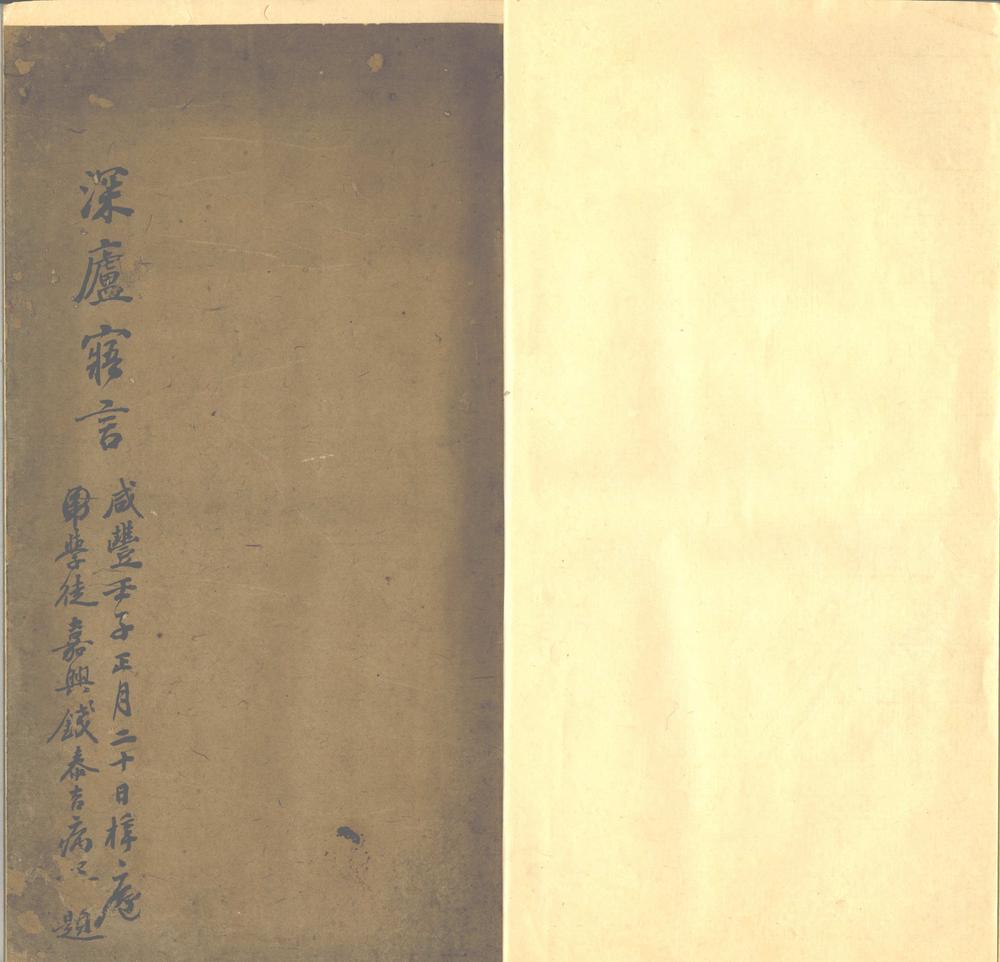 深廬寱言
咸豐壬子正月二十日檡庵
學徒嘉興錢泰吉病已題